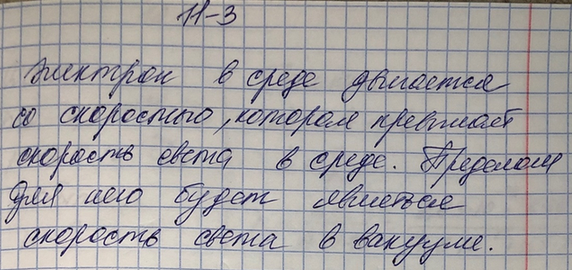 11-3
Электрон в среде двигается
со скоростью, которая превышает
скорость света в среде. Пределом
для него будет являться
скорость света в вакууме.